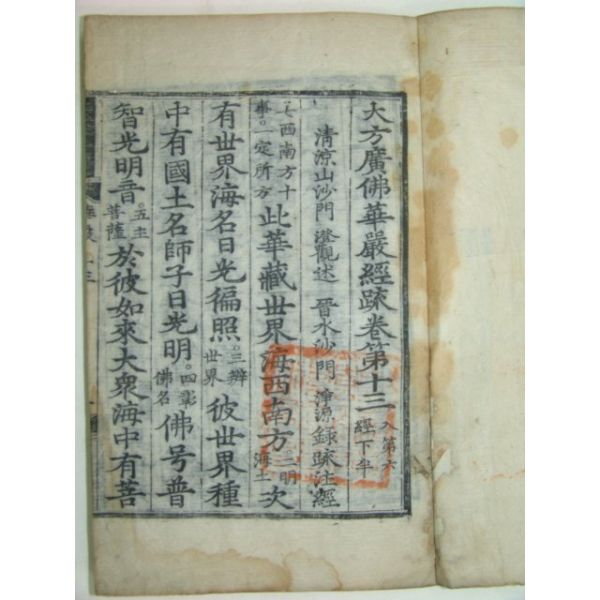 大方廣佛華嚴經䟽卷第十三 入第六經下半
清涼山沙門 澄觀述 晉水沙門 淨源錄䟽注經
西南方十 一定所方 此華藏世界海西南方 二明海土 次
有世界海名日光徧照 三辨世界 彼世界種
中有國土名師子日光明 四彰佛名 佛号普
智光明音 五主菩薩 於彼如來大衆海中有菩